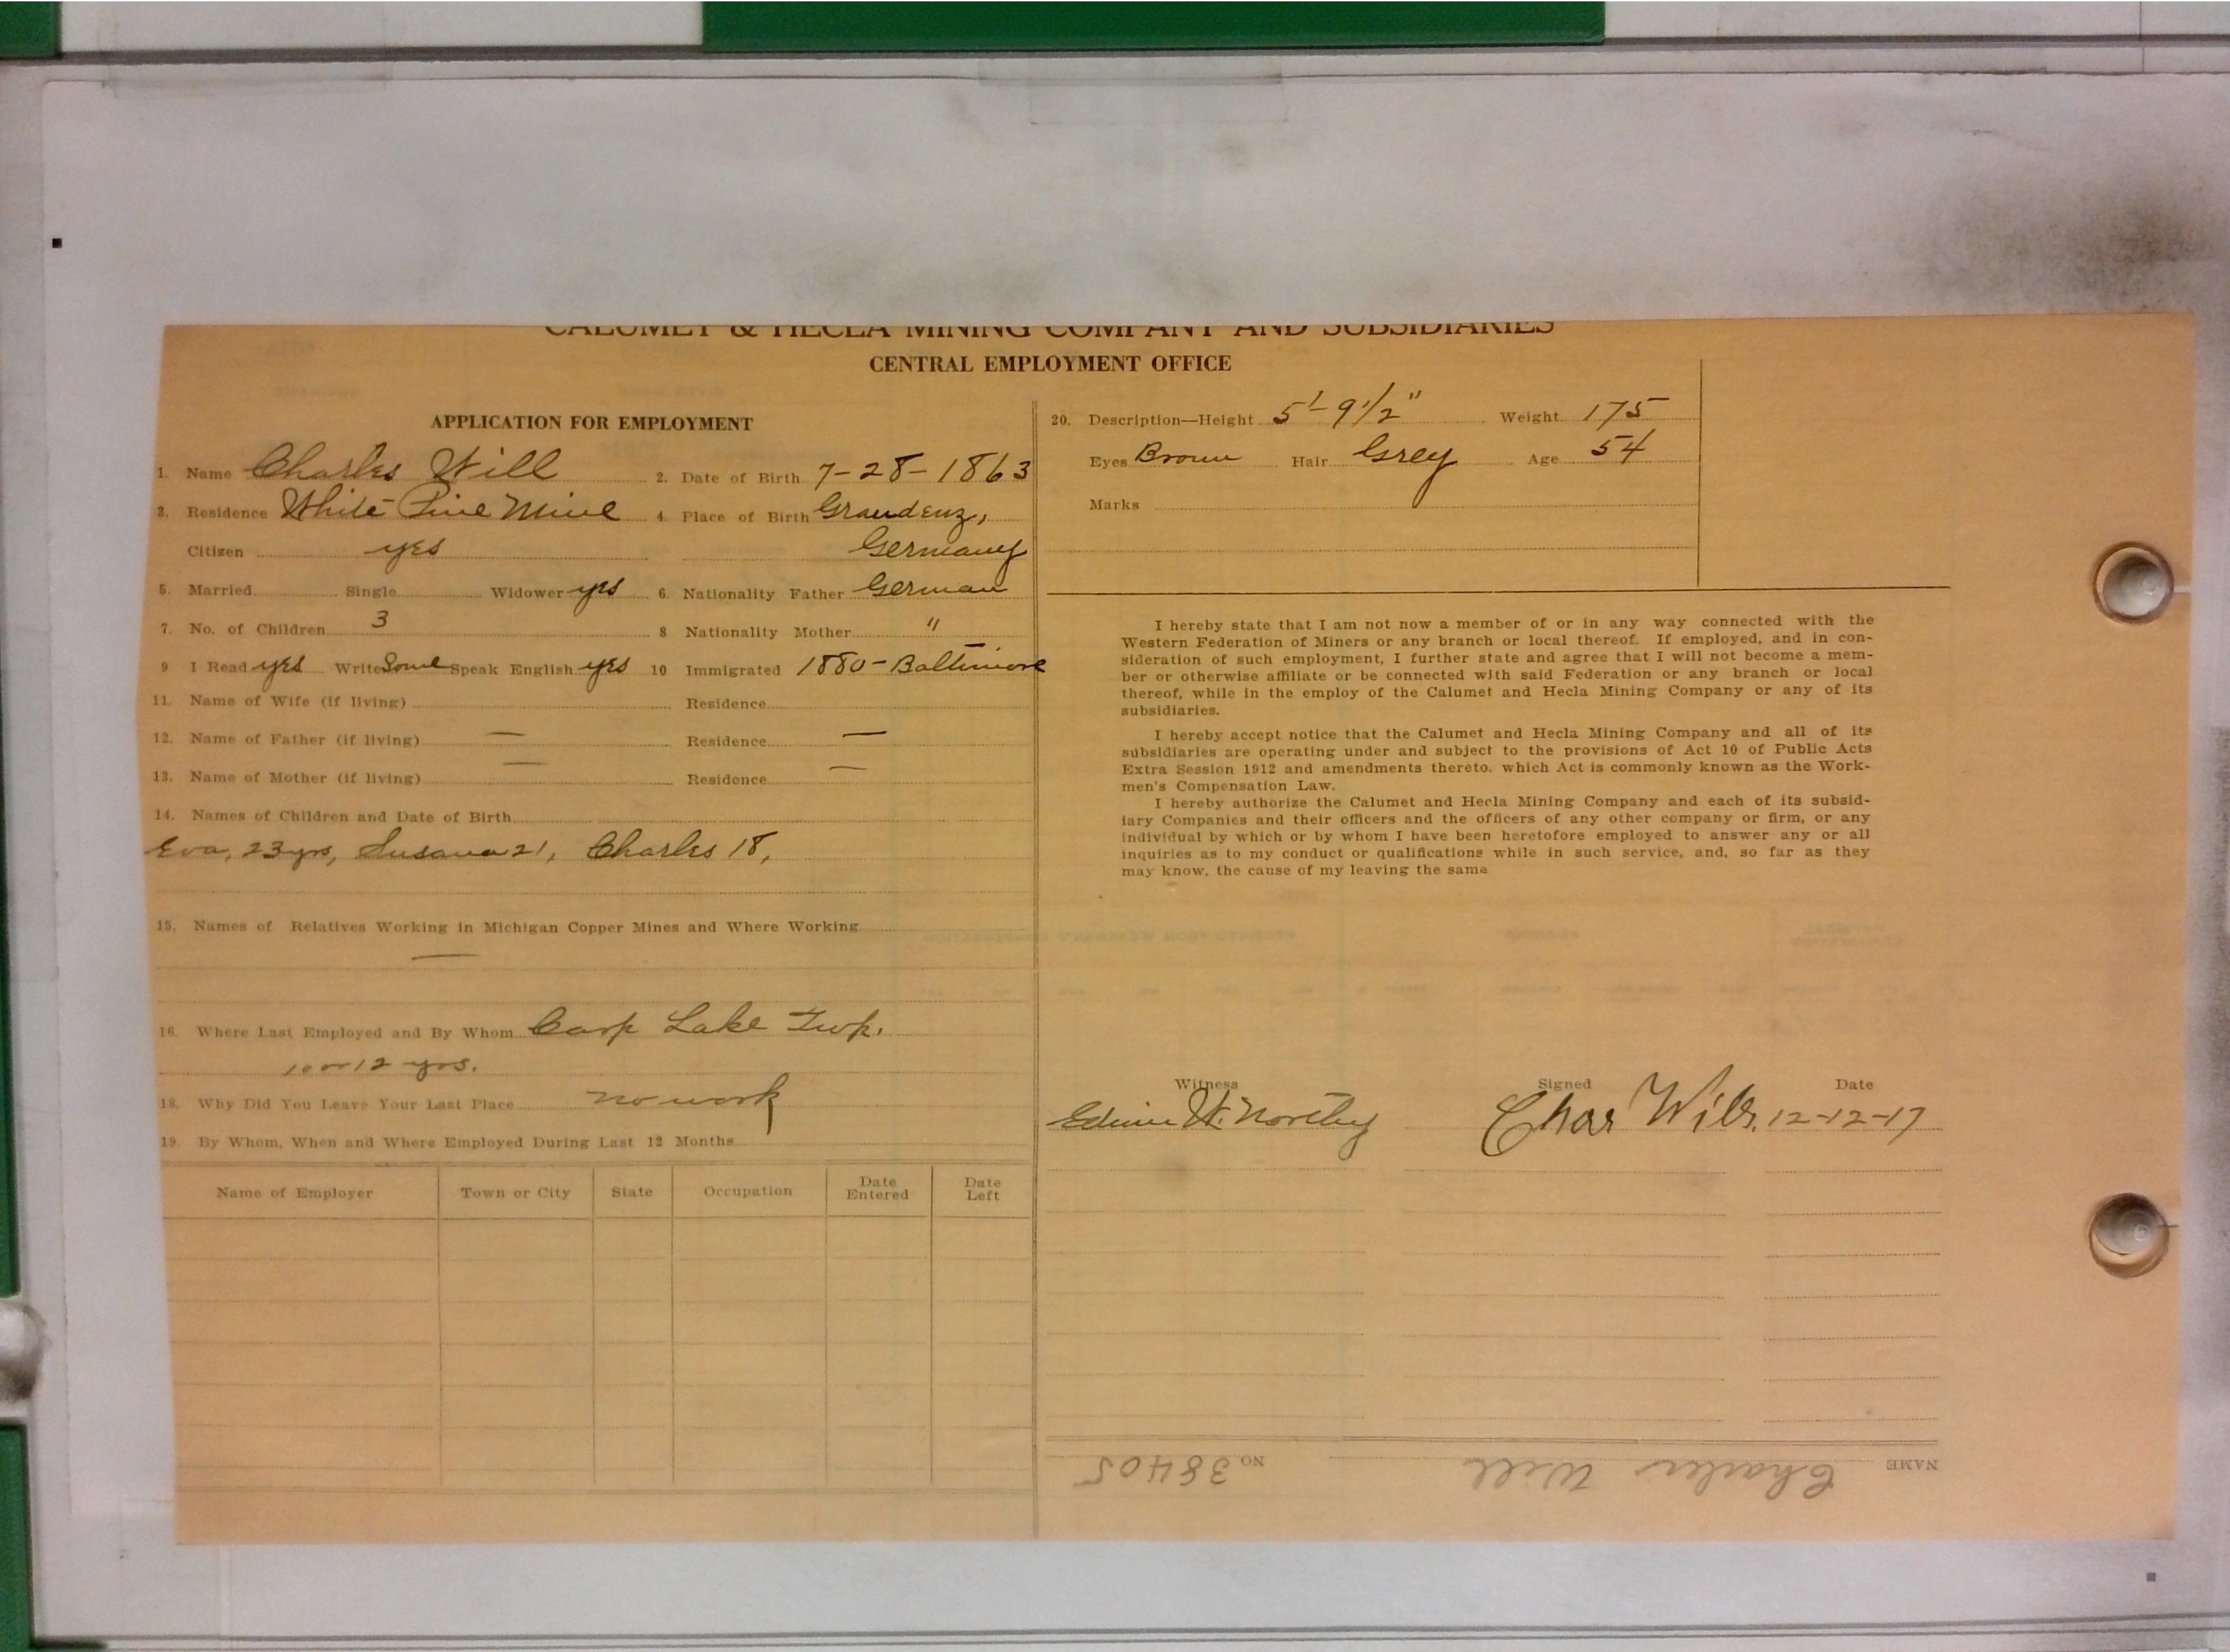 CALUMET & HECLA MINING COMPANY AND SUBSIDIARIES
CENTRAL EMPLOYMENT OFFICE
APPLICATION FOR EMPLOYMENT
1. Name Charles Will 2. Date of Birth 7-28-1863
3. Residence White Pine Mine 4. Place of Birth Graudenz,
Citizen yes Germany
5. Married Single Widower yes 6. Nationality Father German
7. No. of Children 3 8 Nationality Mother "
9 I Read yes Write Some Speak English yes 10 Immigrated 1880-Baltimore
11. Name of Wife (if living) Residence
12. Name of Father (if living) — Residence —
13. Name of Mother (if living) — Residence —
14. Names of Children and Date of Birth
Eva, 23 yrs, Susana 21, Charles 18,
15. Names of Relatives Working in Michigan Copper Mines and Where Working
—
16. Where Last Employed and By Whom Carp Lake Twp.
10 or 12 yrs.
18. Why Did You Leave Your Last Place no work
19. By Whom, When and Where Employed During Last 12 Months
Name of Employer Town or City State Occupation Date Entered Date Left
20. Description—Height 5'-9 1/2" Weight 175
Eyes Brown Hair Grey Age 54
Marks
I hereby state that I am not now a member of or in any way connected with the
Western Federation of Miners or any branch or local thereof. If employed, and in con-
sideration of such employment, I further state and agree that I will not become a mem-
ber or otherwise affiliate or be connected with said Federation or any branch or local
thereof, while in the employ of the Calumet and Hecla Mining Company or any of its
subsidiaries.
I hereby accept notice that the Calumet and Hecla Mining Company and all of its
subsidiaries are operating under and subject to the provisions of Act 10 of Public Acts
Extra Session 1912 and amendments thereto. which Act is commonly known as the Work-
men's Compensation Law.
I hereby authorize the Calumet and Hecla Mining Company and each of its subsid-
iary Companies and their officers and the officers of any other company or firm, or any
individual by which or by whom I have been heretofore employed to answer any or all
inquiries as to my conduct or qualifications while in such service, and, so far as they
may know, the cause of my leaving the same
Witness Signed Date
Edwin W. Northey Chas Will, 12-12-17
NAME Charles Will NO. 38405